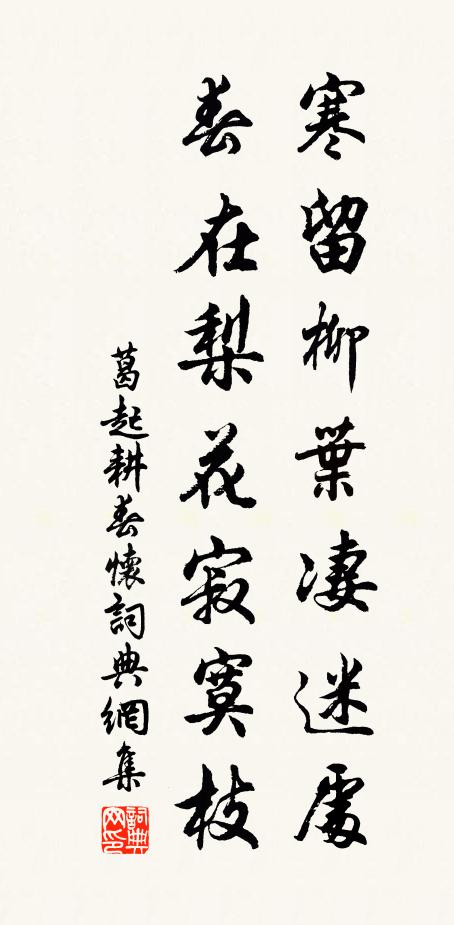 寒留柳葉凄迷處
春在梨花寂寞枝
葛起耕春懷詞典網集
詞典
网印